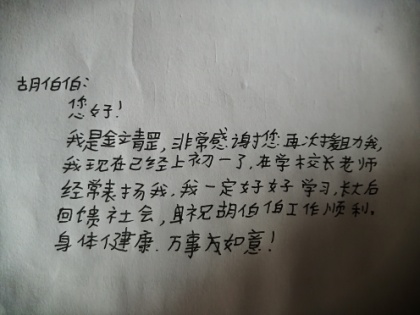 胡伯伯:
您好!
我是金靖罡,非常感谢您再次援助我,
我现在已经上初一了,在学校校长老师
经常表扬我,我一定好好学习,长大后
回馈社会,祝胡伯伯工作顺利。
身体健康.万事如意!